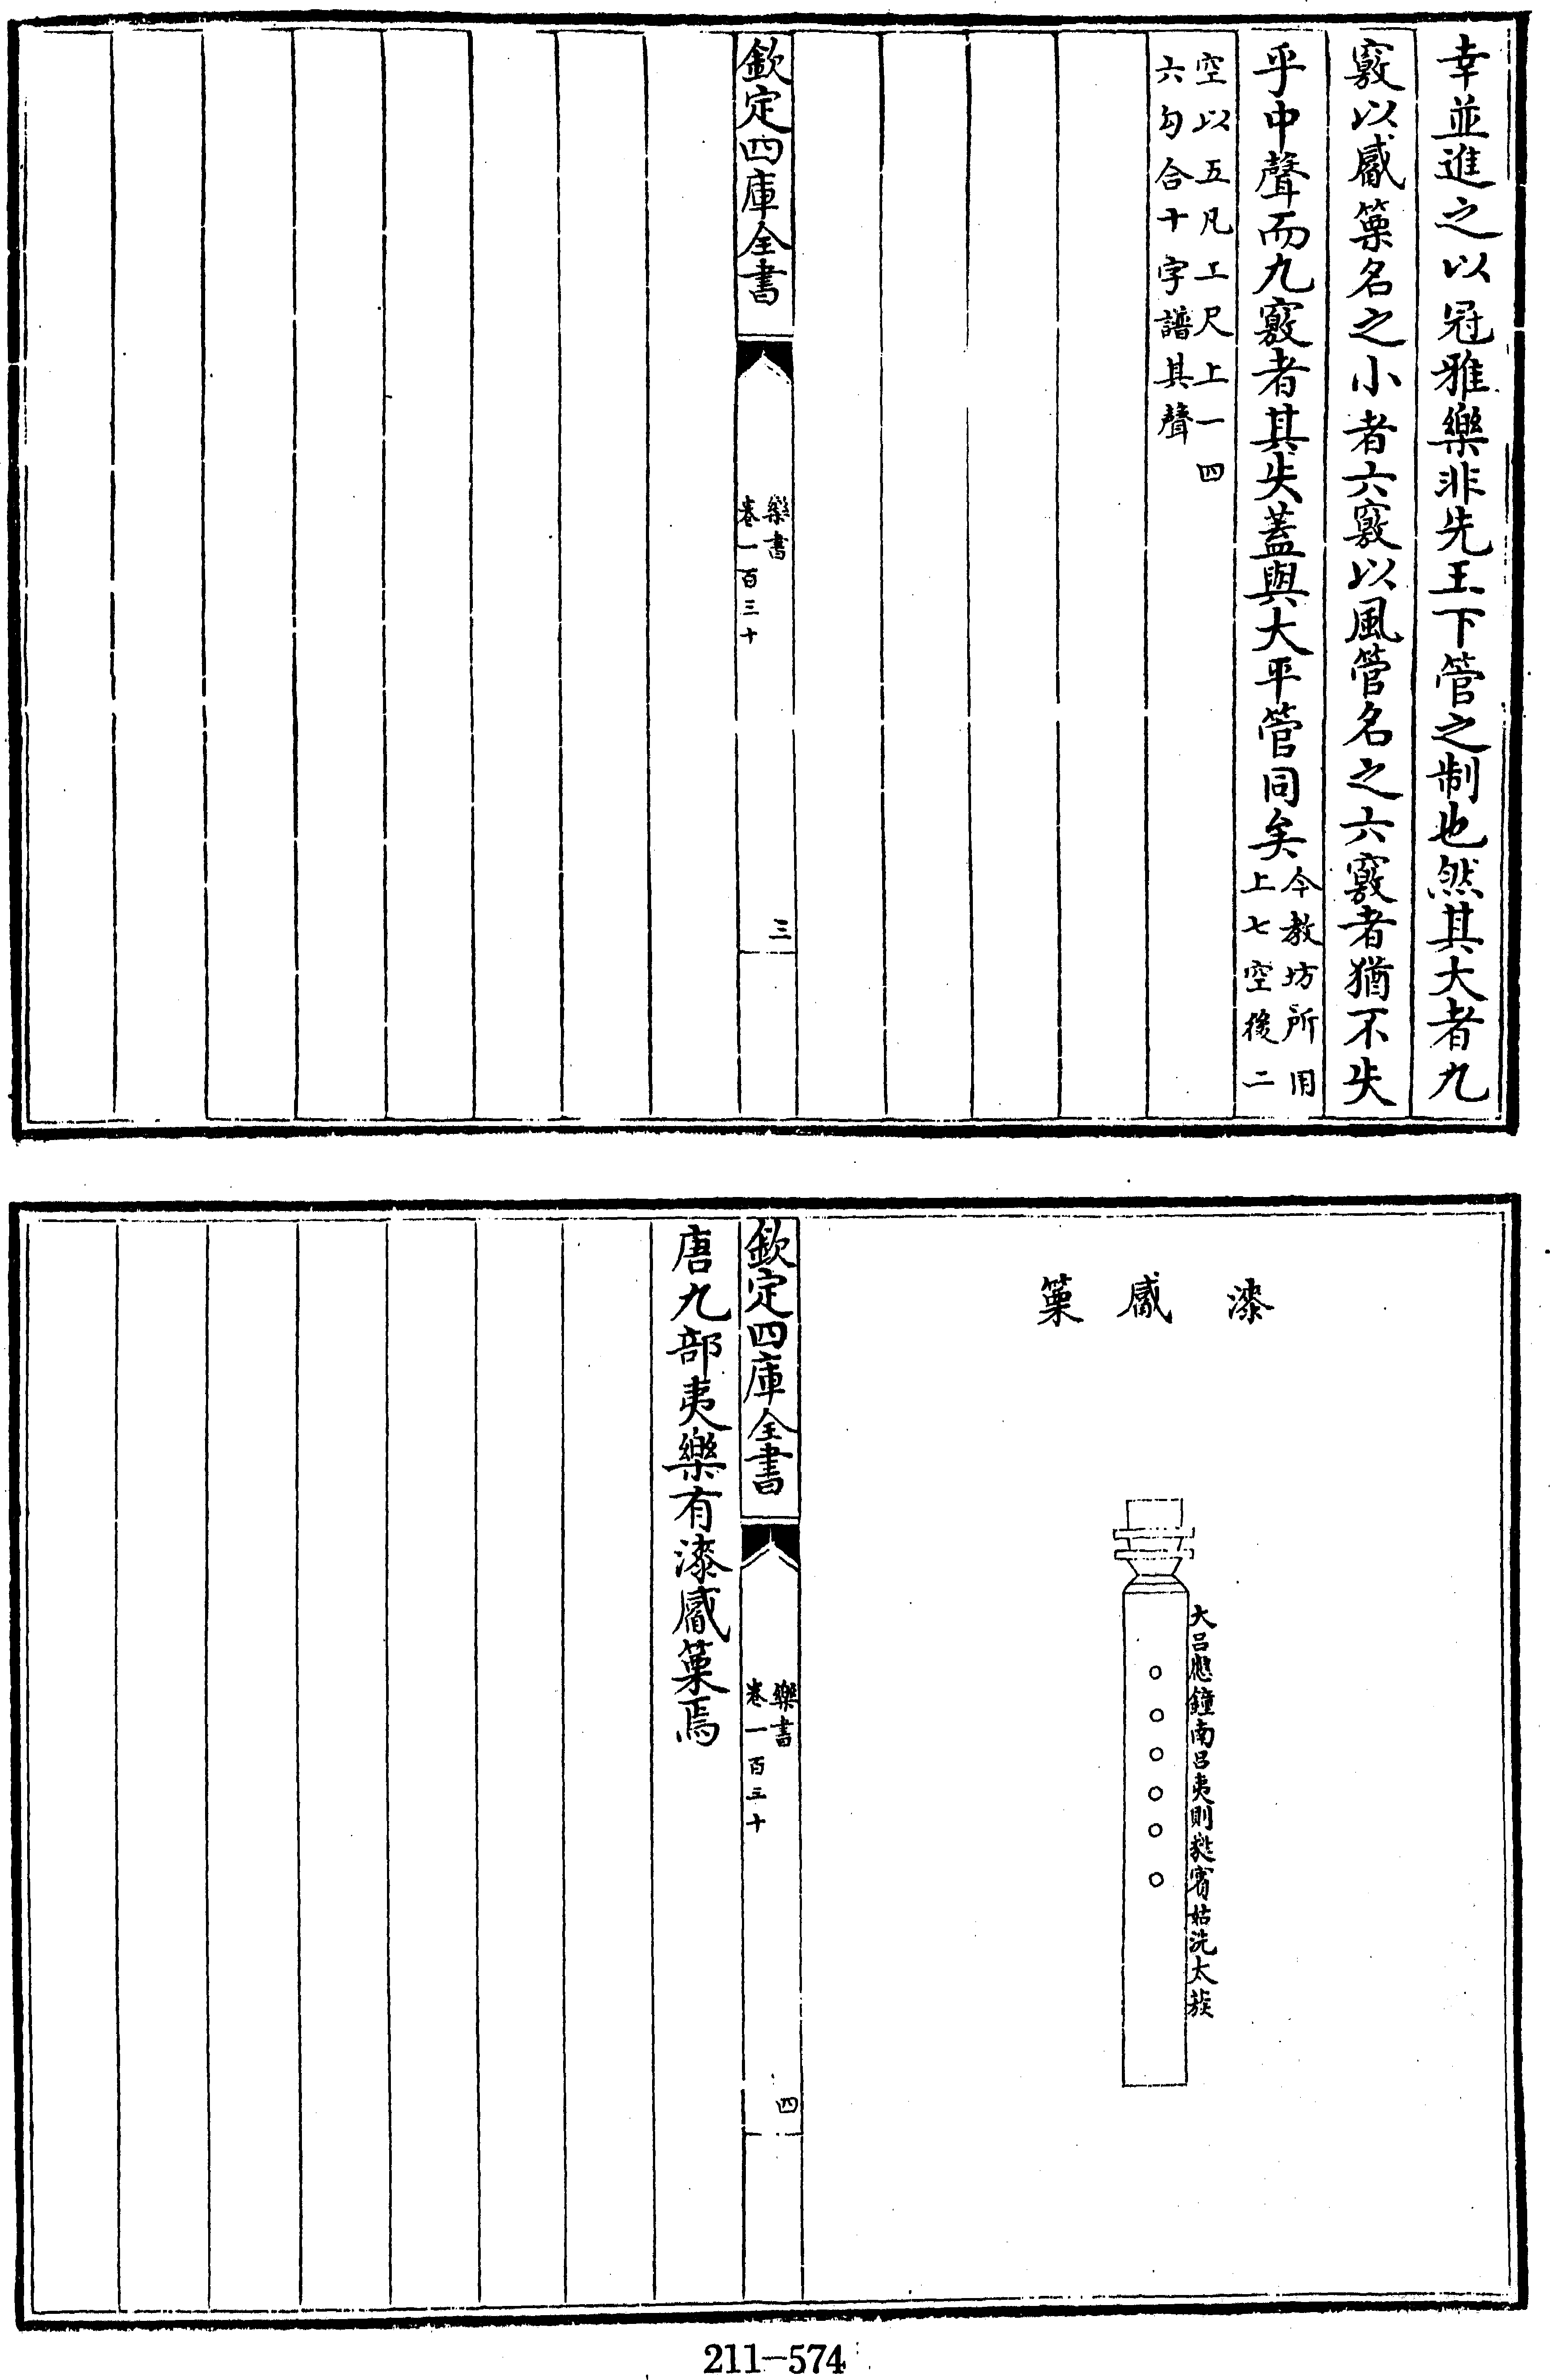 幸並進之以冠雅樂非先王下管之制也然其大者九
竅以觱篥名之小者六竅以風管名之六竅者猶不失
乎中聲而九竅者其失蓋與大平管同矣今教坊所用
上七空後二
空以五凡工尺上一四
六勾合十字譜其聲
欽定四庫全書
樂書
卷一百三十
三
漆觱篥
大呂應鐘南呂夷則蕤賓姑洗太蔟
欽定四庫全書
樂書
卷一百三十
四
唐九部夷樂有漆觱篥焉
211—574